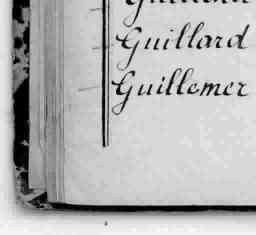 Guillard
Guillemer